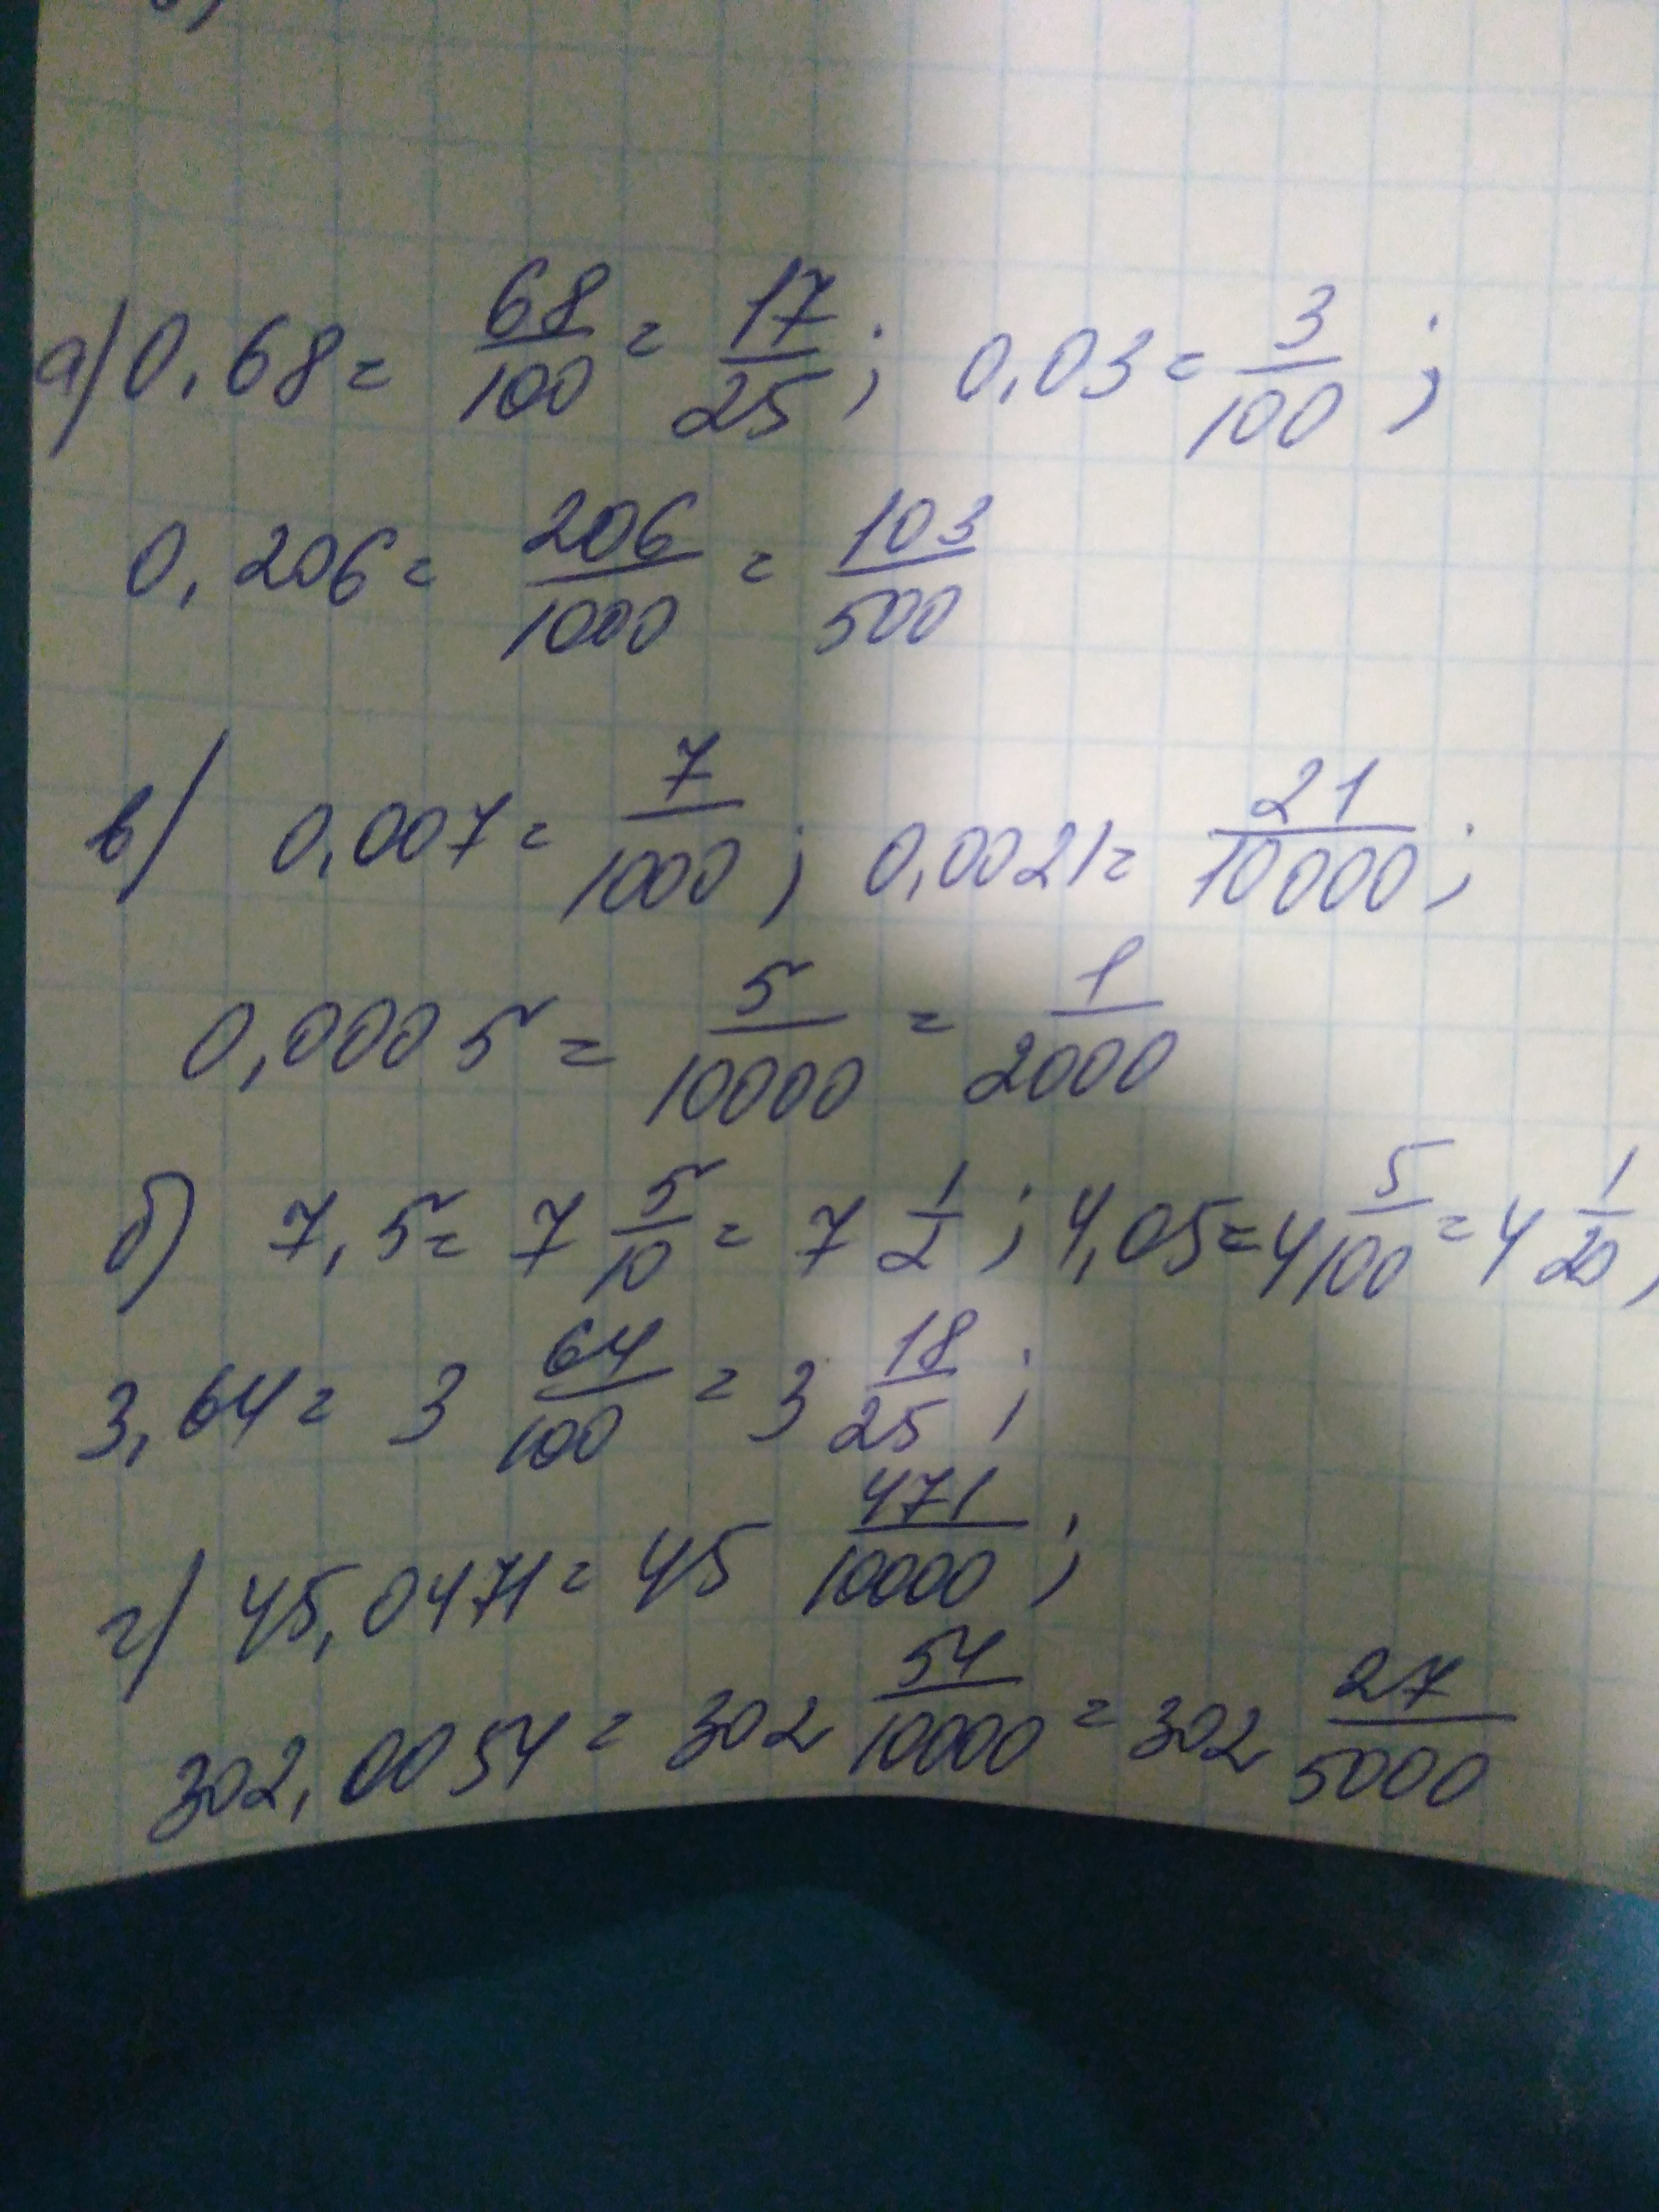 а) 0,68 = 68/100 = 17/25; 0,03 = 3/100;
0,206 = 206/1000 = 103/500
в) 0,007 = 7/1000; 0,0021 = 21/10000;
0,0005 = 5/10000 = 1/2000
б) 7,5 = 7 5/10 = 7 1/2; 4,05 = 4 5/100 = 4 1/20;
3,64 = 3 64/100 = 3 18/25;
г) 45,0471 = 45 471/10000;
302,0054 = 302 54/10000 = 302 27/5000